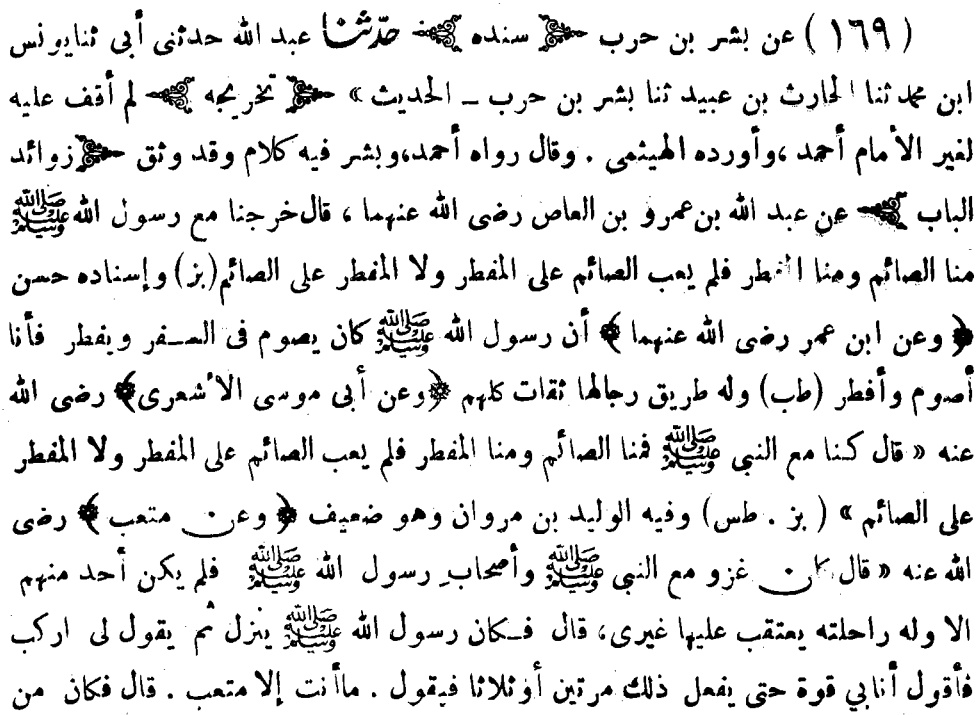 ( ١٦٩ ) عن بشر بن حرب ﴿ سنده ﴾ حدّثنا عبد الله حدثنى أبى ثنا يونس
ابن محمد ثنا الحارث بن عبيد ثنا بشر بن حرب ــ الحديث » ﴿ تخريجه ﴾ لم أقف عليه
لغير الأمام أحمد ،وأورده الهيثمى . وقال رواه أحمد،وبشر فيه كلام وقد وثق ﴿ زوائد
الباب ﴾ عن عبد الله بن عمرو بن العاص رضى الله عنهما ، قال خرجنا مع رسول الله ﷺ
منا الصائم ومنا المفطر فلم يعب الصائم على المفطر ولا المفطر على الصائم (بز) وإسناده حسن
﴿ وعن ابن عمر رضى الله عنهما ﴾ أن رسول الله ﷺ كان يصوم فى السفر ويفطر فأنا
أصوم وأفطر (طب) وله طريق رجالها ثقات كلهم ﴿وعن أبى موسى الأشعرى﴾ رضى الله
عنه « قال كنا مع النبى ﷺ فمنا الصائم ومنا المفطر فلم يعب الصائم على المفطر ولا المفطر
على الصائم » ( بز . طس) وفيه الوليد بن مروان وهو ضعيف ﴿ وعن متعب ﴾ رضى
الله عنه « قال كان غزو مع النبى ﷺ وأصحاب رسول الله ﷺ فلم يكن أحد منهم
الا وله راحلته يعتقب عليها غيرى، قال فكان رسول الله ﷺ ينزل ثم يقول لى اركب
فأقول أنا بي قوة حتى يفعل ذلك مرتين أو ثلاثا فيقول . ما أنت إلا متعب . قال فكان من